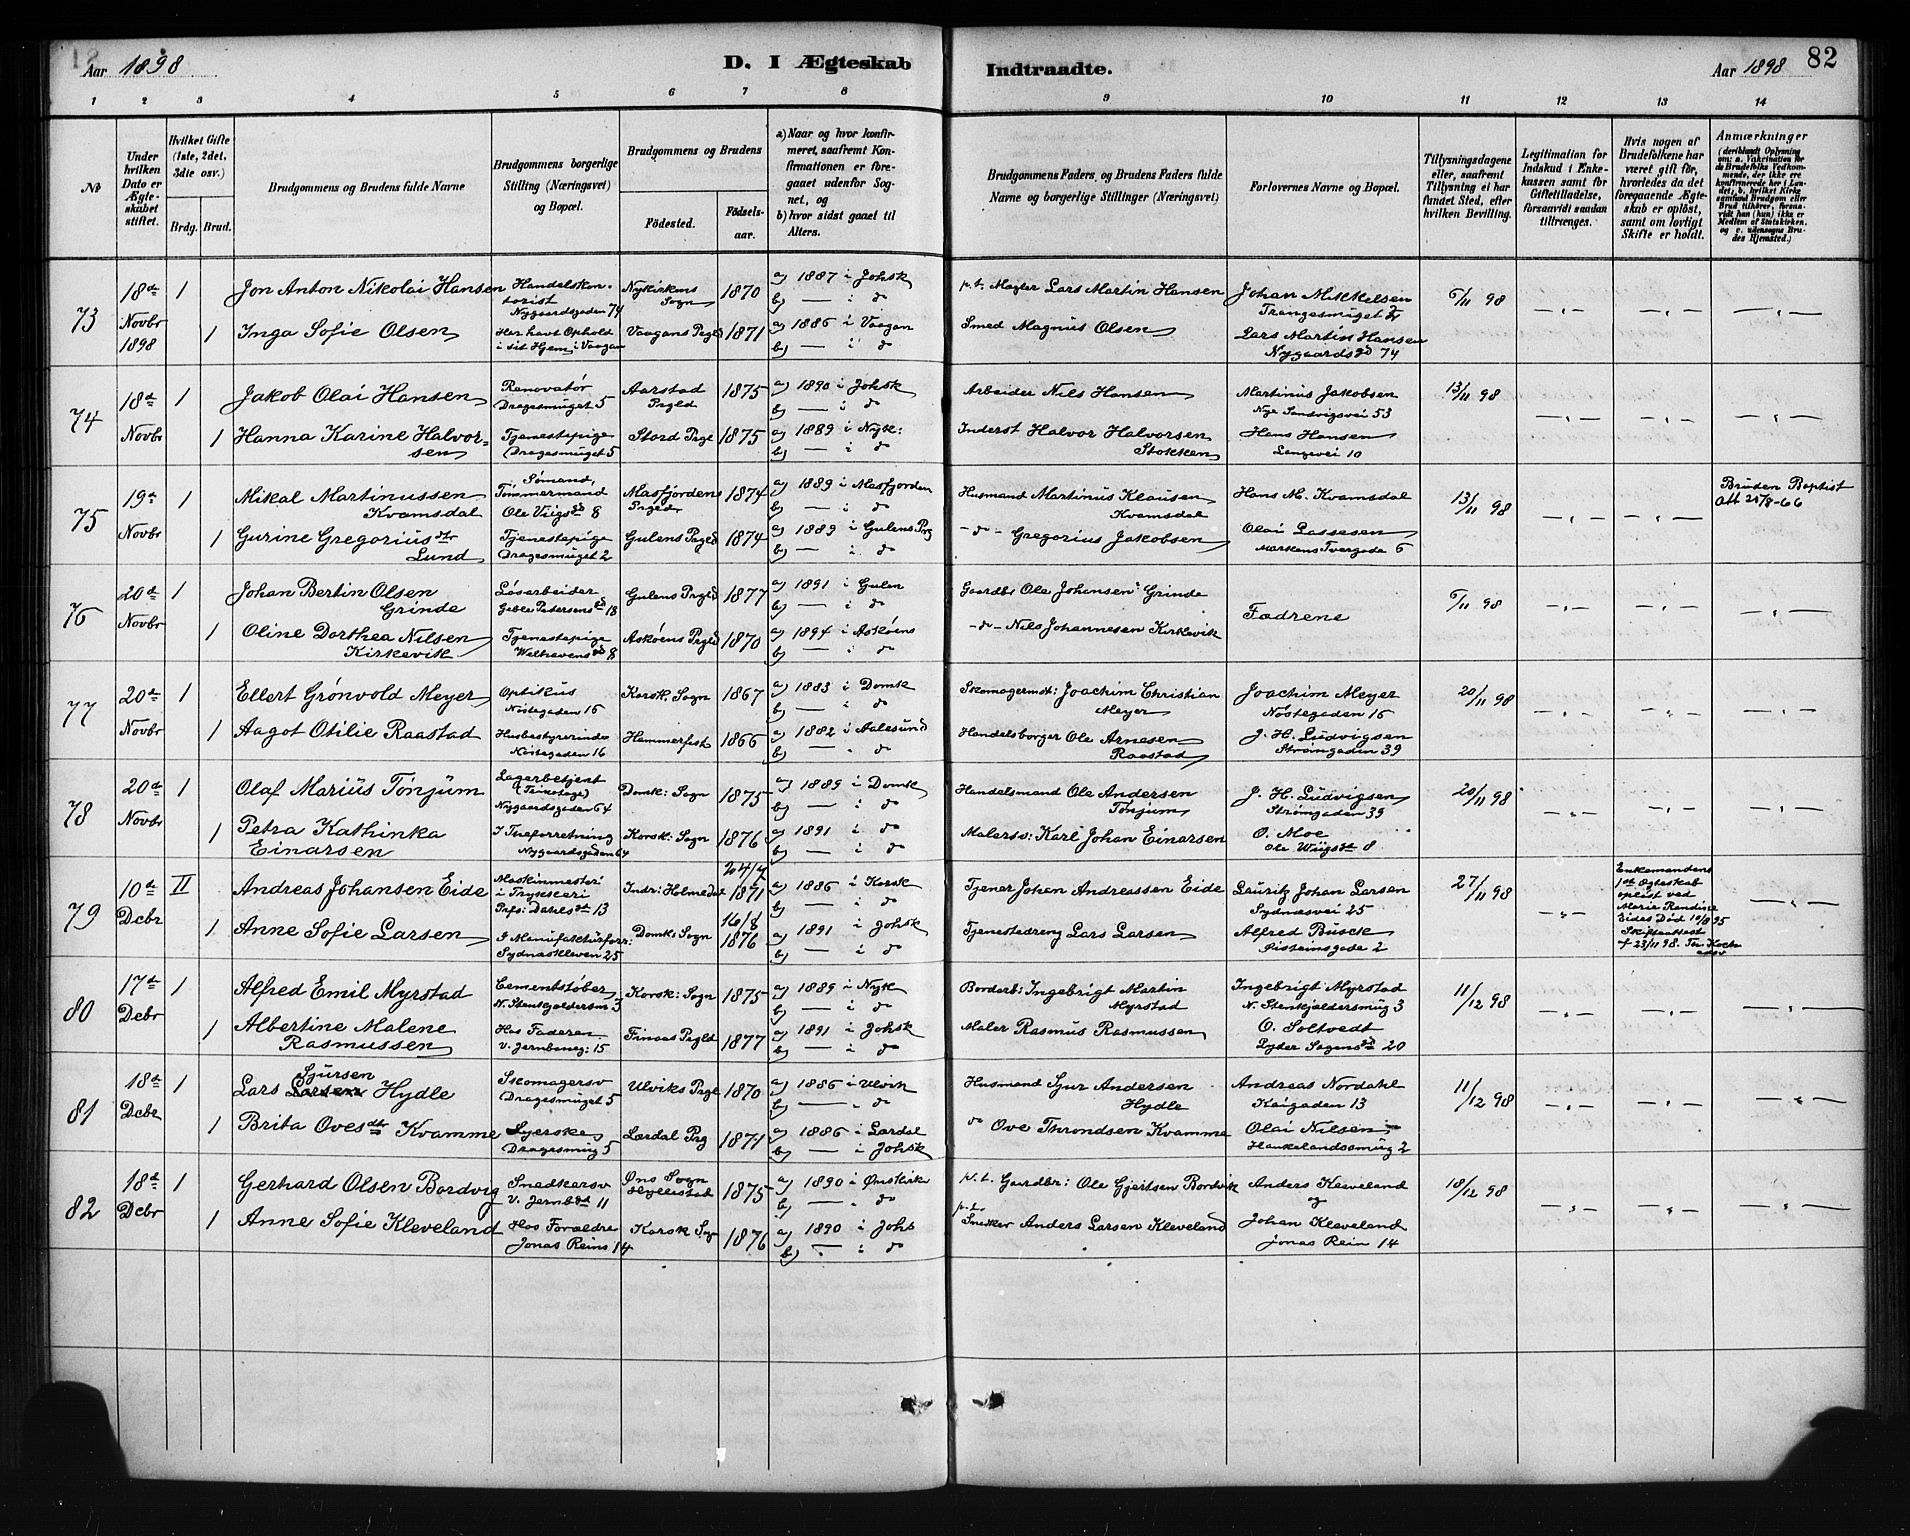 Aar 1898
D. I Ægteskab
Indtraadte.
Aar 1898
82
1 2 3 4 5 6 7 8 9 10 11 12 13 14
No
Under hvilken Dato er Ægteskabet stiftet.
Hvilket Gifte (1ste, 2det, 3die osv.)
Brdg. Brud.
Brudgommens og Brudens fulde Navne
Brudgommens borgerlige Stilling (Næringsvei) og Bopæl.
Brudgommens og Brudens
Födested.
Födsels-aar.
a) Naar og hvor konfirmeret, saafremt Konfirmationen er foregaaet udenfor Sognet, og
b) hvor sidst gaaet til Alters.
Brudgommens Faders, og Brudens Faders fulde Navne og borgerlige Stillinger (Næringsvei)
Forlovernes Navne og Bopæl.
Tillysningsdagene eller, saafremt Tillysning ei har fundet Sted, efter hvilken Bevilling.
Legitimation for Indskud i Ænkekassen samt for Giftetilladelse, forsaavidt saadan tiltrænges.
Hvis nogen af Brudefolkene har været gift før, hvorledes da det foregaaende Ægteskab er opløst, samt om lovligt Skifte er holdt.
Anmærkninger (deriblandt Oplysning om: a. Vakcination for de Brudefolks Vedkommende, der ikke ere konfirmerede her i Landet; b. hvilket Kirkesamfund Brudgom eller Brud tilhører, forsaavidt han (hun) ikke er Medlem af Statskirken. og c. udensogns Brudes Hjemsted.)
73 18de Novbr 1898 1 Jon Anton Nikolai Hansen Handelskontorist Nygaardsgaden 74 Nykirkens Sogn 1870 a) 1887 i Johsk b) — i do p.t. Mægler Lars Martin Hansen Johan Mikkelsen Trangesmuget 6/11 98
1 Inga Sofie Olsen Her havt Ophold i sit Hjem i Vaagan Vaagans Prgld 1871 a) 1886 i Vaagan b) — i do Smed Magnus Olsen Lars Martin Hansen Nygaardsgd 74
74 18de Novbr 1 Jakob Olai Hansen Renovatør Dragesmuget 5 Aarstad Prgld 1875 a) 1890 i Johsk b) — i do Arbeider Nils Hansen Martinus Jakobsen Nye Sandvigsvei 53 13/11 98
1 Hanna Karine Halvorsen Tjenestepige Dragesmuget 5 Stord Prgld 1875 a) 1889 i Nyk: b) — i do Inderst Halvor Halvorsen Stokken Hans Hansen Langevei 10
75 19de Novbr 1 Mikal Martinussen Kvamsdal Sømand, Tømmermand Ole Viigsgd 8 Masfjordens Prgld 1874 a) 1889 i Masfjorden b) — i do Husmand Martinus Klausen Kvamsdal Hans M. Kvamsdal 13/11 98 Bruden Baptist Att 21/8-66
1 Gurine Gregoriusdtr Lund Tjenestepige Dragesmuget 2 Gulens Prgld 1874 a) 1889 i Gulens Prg b) — i do – do – Gregorius Jakobsen Olai Lassesen Markens Tvergade 6
76 20de Novbr 1 Johan Bertin Olsen Grinde Løsarbeider Geble Pedersensgd 18 Gulens Prgld 1877 a) 1891 i Gulen b) — i do Gaardbr Ole Johansen Grinde Fædrene 6/11 98
1 Oline Dorthea Nilsen Kirkevik Tjenestepige Welhavensgd 8 Askøens Prgld 1870 a) 1894 i Askøens b) — i do – do – Nils Johannesen Kirkevik
77 20de Novbr 1 Ellert Grønvold Meyer Optikus Nøstegaden 16 Korsk. Sogn 1867 a) 1883 i Domk b) — i do Skomagermst: Joachim Christian Meyer Joachim Meyer Nøstegaden 16 20/11 98
1 Aagot Otilie Raastad Husbestyrerinde Nøstegaden 16 Hammerfest 1866 a) 1882 i Aalesund b) — i do Handelsborger Ole Arnesen Raastad J. H. Ludvigsen Strømgaden 39
78 20de Novbr 1 Olaf Marius Tønjum Lagerbetjent (Trikotage) Nygaardsgaden 64 Domk: Sogn 1875 a) 1889 i Domk b) — i do Handelsmand Ole Andersen Tønjum J. H. Ludvigsen Strømgaden 39 20/11 98
1 Petra Kathinka Einarsen I Forretning Nygaardsgaden 64 Korsk: Sogn 1876 a) 1891 i do b) — i do Malersv: Karl Johan Einarsen O. Moe Ole Wiigsgd 8
79 10de Debr II Andreas Johansen Eide Maskinmester i Trykkeri Prfs: Dahlsgd 13 Indr: Holmedal 24/4 1871 a) 1886 i Korsk b) — i do Tjener Johan Andreassen Eide Lauritz Johan Larsen Sydnæsvei 25 27/11 98 Enkemandens 1ste Ægteskab opløst ved Marie Rendine Eides Død 10/8 95 Skifteattest f 23/11 98.
1 Anne Sofie Larsen I Manufakturforr: Sydnæskleven 25 Domk: Sogn 16/8 1876 a) 1891 i Johsk b) — i do Tjenestedreng Lars Larsen Alfred Busck Sisteinsgade 2
80 17de Debr 1 Alfred Emil Myrstad Cementstøber N. Stenkjeldersm 3 Korsk: Sogn 1875 a) 1889 i Nyk b) — i do Bordarb: Ingebrigt Martin Myrstad Ingebrigt Myrstad N. Stenkjeldersmug 3 11/12 98
1 Albertine Malene Rasmussen Hos Faderen V. Jernbaneg: 15 Finnaas Prgld 1877 a) 1891 i Johsk b) — i do Maler Rasmus Rasmussen O. Soltvedt Lyder Sagensgd 20
81 18de Debr 1 Lars Sjursen Hydle Skomagersv Dragesmuget 5 Ulviks Prgld 1870 a) 1886 i Ulvik b) — i do Husmand Sjur Andersen Hydle Andreas Nordahl Kaigaden 13 11/12 98
1 Brita Ovesdtr Kvamme Syerske Dragesmug 5 Lærdal Prg 1871 a) 1886 i Lærdal b) — i Johsk do Ove Throndsen Kvamme Olai Nilsen Haukelandssmug 2
82 18de Debr 1 Gerhard Olsen Bordvig Snedkersv V. Jernbgd 11 Øns Sogn Hyllestad 1875 a) 1890 i Ønskirke b) — i do p.t. Gaardbr: Ole Gjertsen Bordvik Anders Kleveland og 18/12 98
1 Anne Sofie Kleveland Hos Forældre Jonas Reins 14 Korsk Sogn 1876 a) 1890 i Johs b) — i do p.t. Snedker Anders Larsen Kleveland Johan Kleveland Jonas Rein 14